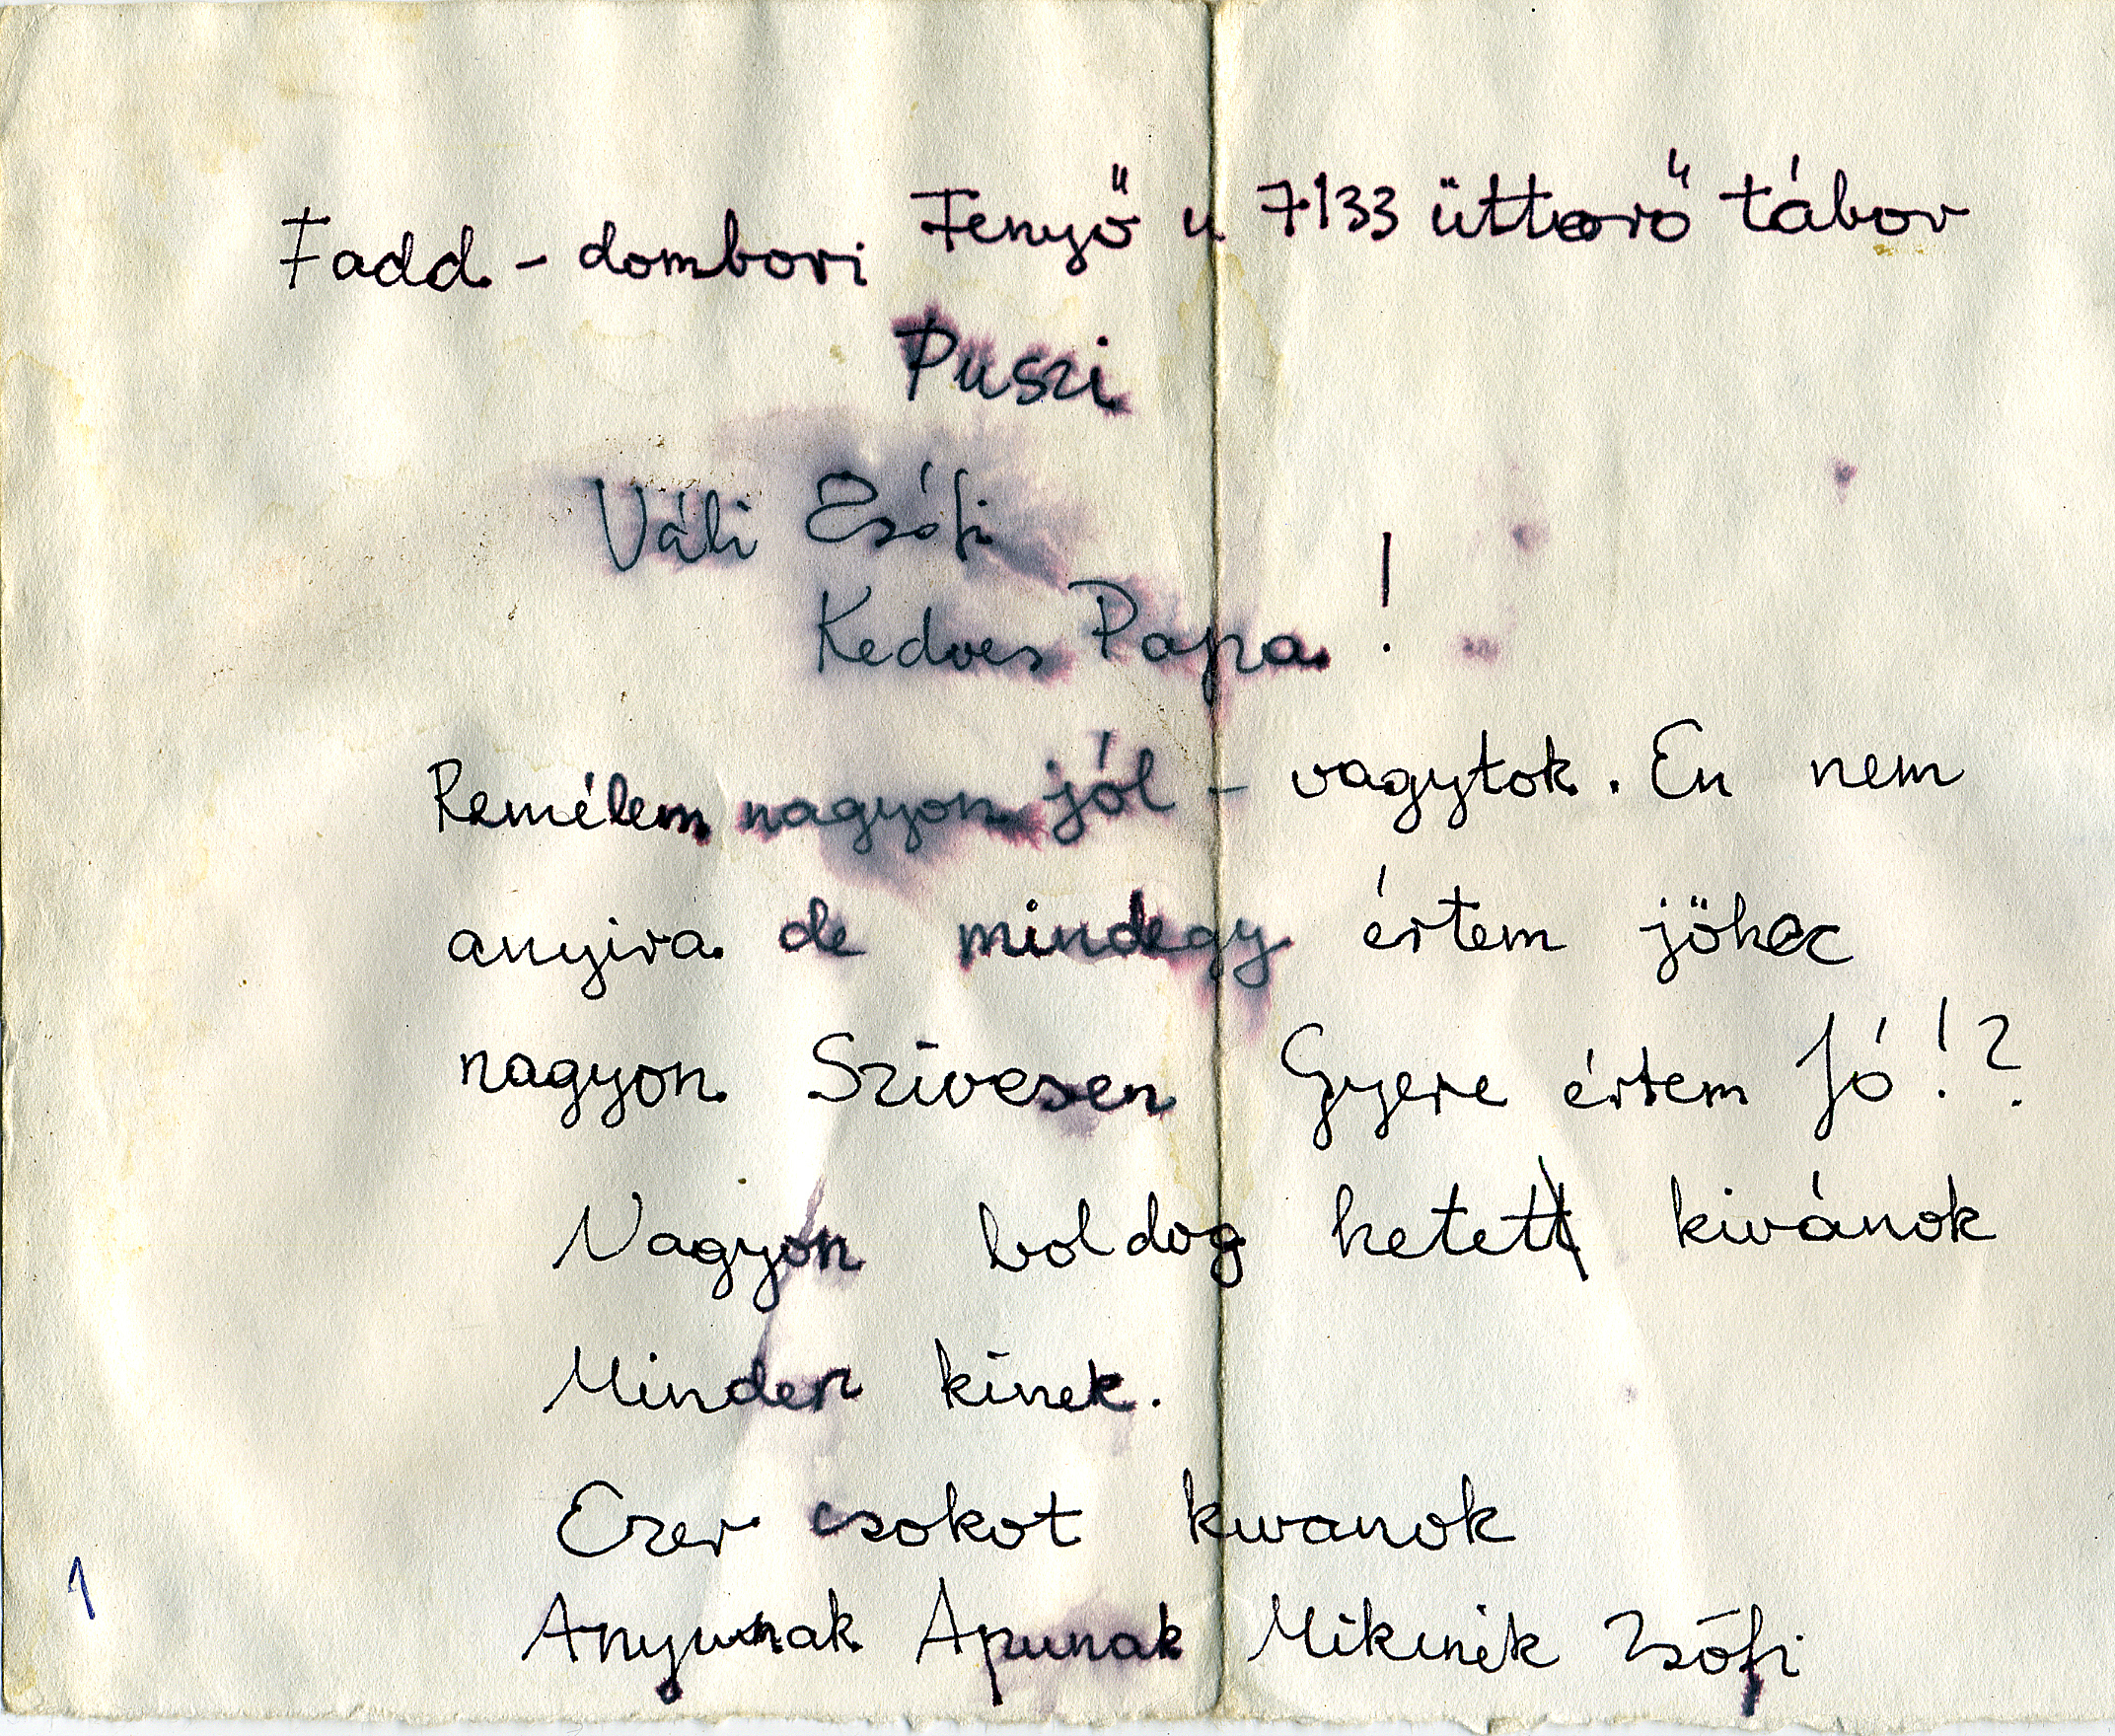 Fadd - dombori Fenyő u 7133 üttörő tábor
Puszi
Váli Zsófi
Kedves Papa !
Remélem nagyon jól - vagytok. En nem
anyira de mindegy értem jöhec
nagyon Szívesen Gyere értem Jó!?
Nagyon boldog hetet kivánok
Minden kinek.
Ezer csokot kivanok
Anyunak Apunak Mikinek Zsófi
1